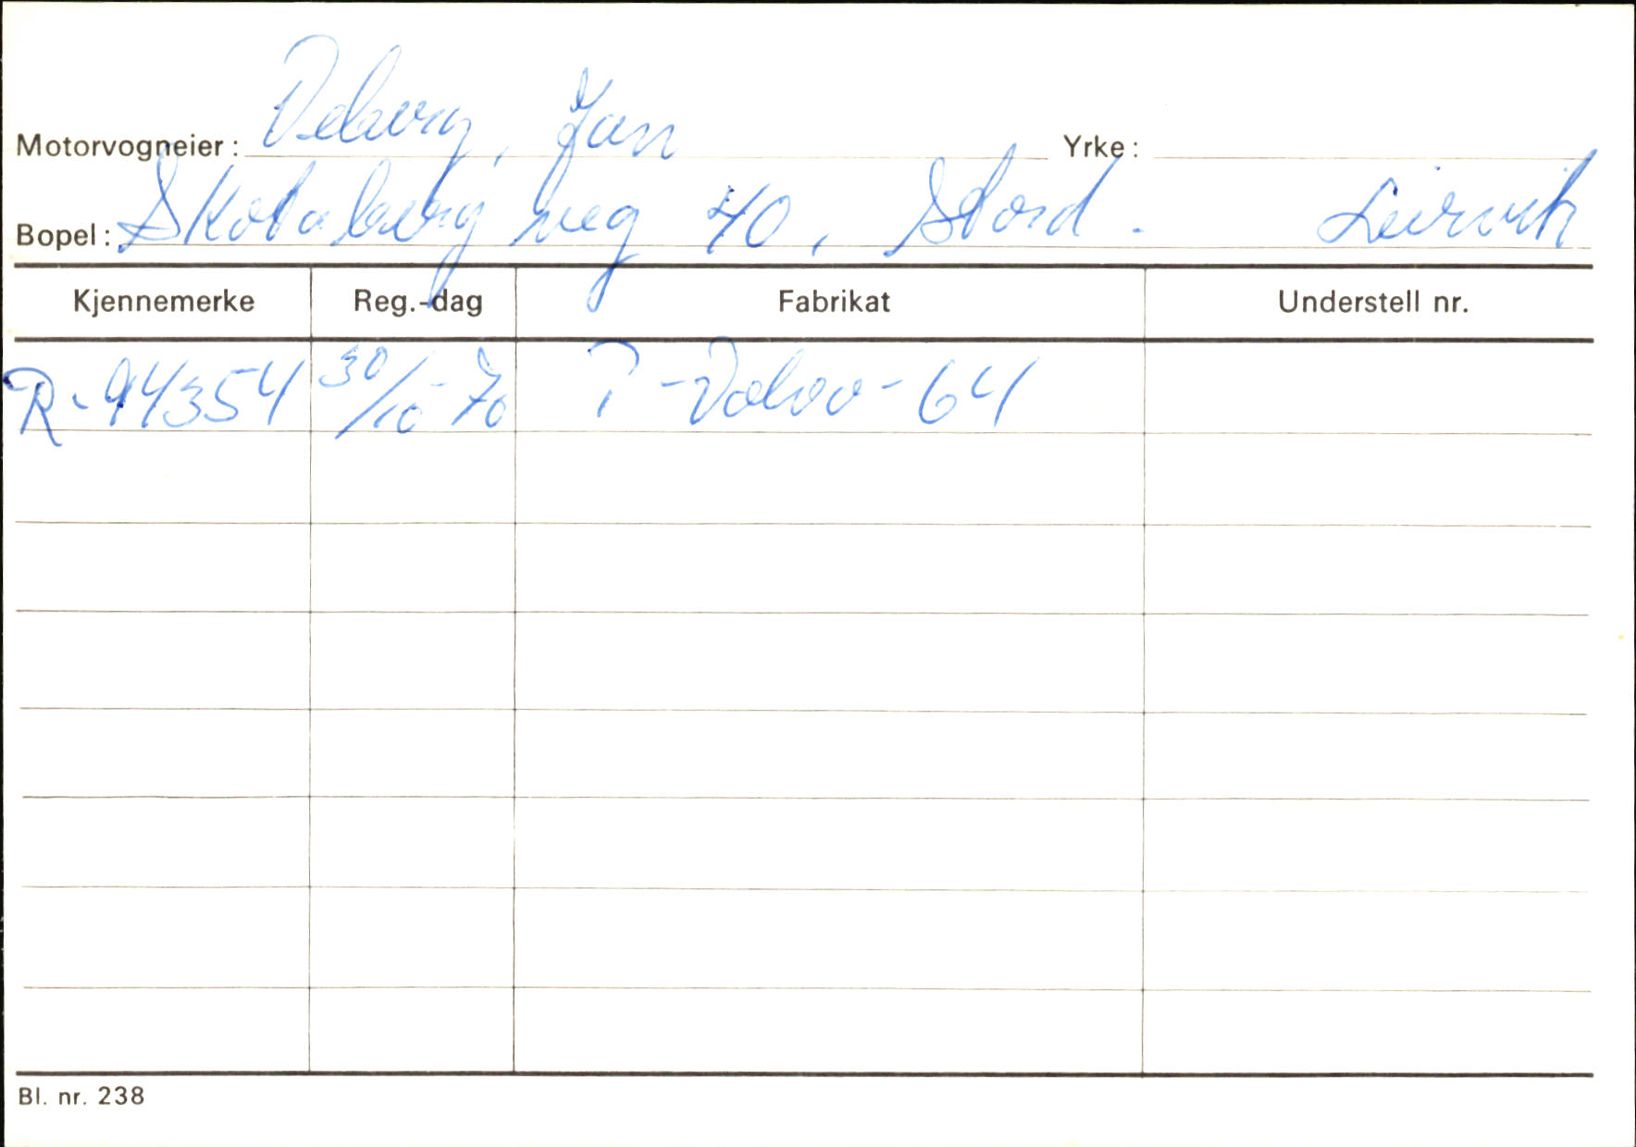 Motorvogneier: Veberg, Jan Yrke:
Bopel: Skotaberg veg 40, Stord. Leirvik
Kjennemerke Reg.-dag Fabrikat Understell nr.
R-94354 30/10-70 P-Volvo-64
Bl. nr. 238